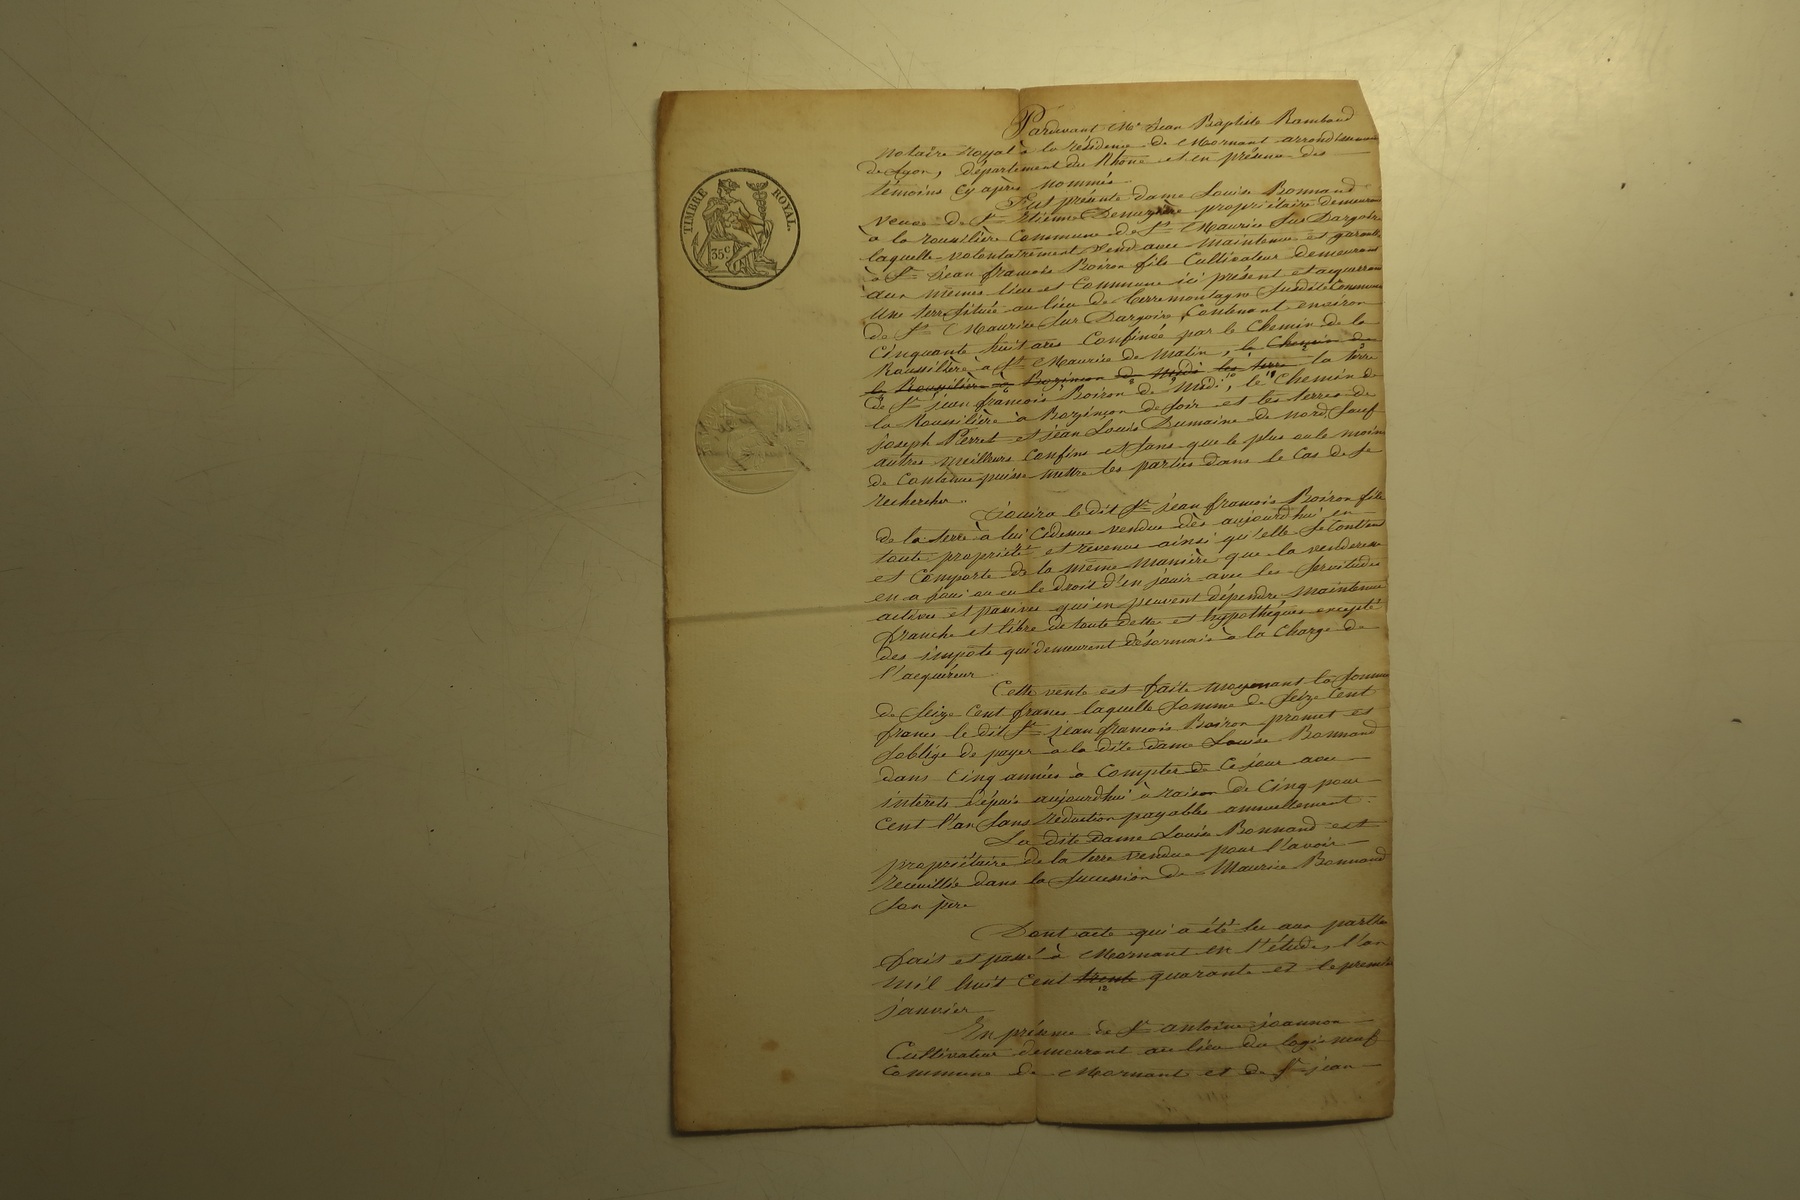 TIMBRE ROYAL.
35 C
Pardevant Me Jean Baptiste Rambaud
notaire royal à la résidence de Mornant arrondissement
de Lyon, département du Rhône et en présence des
témoins cy après nommés
Fut présente dame Louise Bonnand
veuve de Sr Etienne propriétaire demeurant
à la rousilière commune de St Maurice sur Dargoire
laquelle volontairement vend avec maintenue et garantie
à Sr jean francois Boiron fils cultivateur demeurant
aux mêmes lieu et commune ici présent et acquerreur
une terre située au lieu de Terremontagny susdite Commune
de St Maurice sur Dargoire, contenant environ
cinquante huit ares confinée par le chemin de la
Roussilière à St Maurice de matin, le Chemin de
la Rousilière à Bozançon de midi les terre la terre
de Sr jean françois Boiron de midi, le chemin de
la Rousilière à Bozançon de soir et les terres de
joseph Perret et jean Louis Dumaine de nord sauf
autres meilleurs confins et sans que le plus ou le moins
de contenue puisse mettre les parties dans le cas de se
rechercher.
Jouira le dit Sr jean francois Boiron fils
de la terre à lui cidessus vendue dès aujourd'hui en
toute propriété et revenus ainsi qu'elle se contient
et comporte de la même manière que la venderesse
en a joui ou eu le droit d'en jouir avec les servitudes
actives et passives qui en peuvent dépendre maintenue
franche et libre de toute dettes et hypothéques excepté
des impots qui demeurent désormais à la charge de
l'acquéreur
Cette vente est faite moyenant la somme
de seize cent francs laquelle somme de seize cent
francs le dit Sr jean françois Boiron promet et
s'oblige de payer à la dite dame Louise Bonnand
dans cinq années à compter de ce jour avec
intérêts depuis aujourd'hui à raison de cinq pour
cent l'an sans réduction payables annuellement.
La dite dame Louise Bonnand est
propriétaire de la terre vendue pour l'avoir
receuillie dans la sucession de Maurice Bonnand
son père
Dont acte qui a été lu aux parties
fait et passé à Mornant en l'étude, l'an
mil huit cent trente quarante et le premier
12
janvier
En présence de Sr antoine joannon
Cultivateur demeurant au lieu du logis neuf
commune de Mornant et de Sr jean